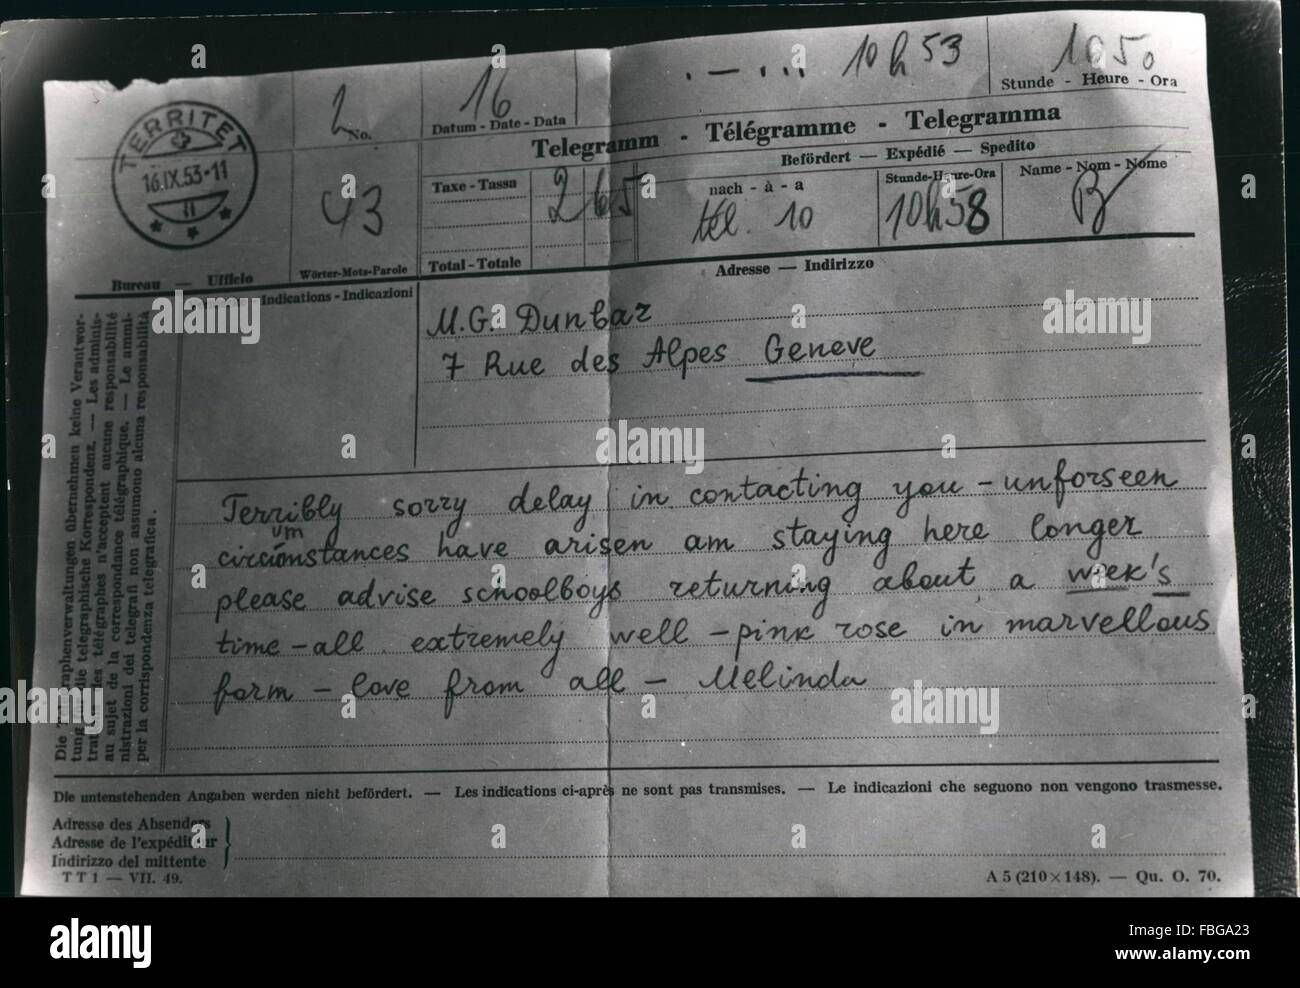 10h53
1050
2 No.
16
Datum - Date - Data
Stunde - Heure - Ora
TERRITET
16.IX.53-11
Telegramm - Télégramme - Telegramma
Befördert — Expédié — Spedito
43
Taxe - Tassa
265
nach - à - a
Stunde-Heure-Ora
Name - Nom - Nome
tél. 10
10h58
B
Bureau — Ufficio
Wörter-Mots-Parole
Total - Totale
Adresse — Indirizzo
Indications - Indicazioni
M. G. Dunbar
7 Rue des Alpes Geneve
Terribly sorry delay in contacting you - unforseen
circumstances have arisen am staying here longer
please advise schoolboys returning about a week's
time - all extremely well - pink rose in marvellous
form - love from all - Melinda
Die Telegraphenverwaltungen übernehmen keine Verantwor-
tung für die telegraphische Korrespondenz. — Les adminis-
trations des télégraphes n'acceptent aucune responsabilité
au sujet de la correspondance télégraphique. — Le ammi-
nistrazioni dei telegrafi non assumono alcuna responsabilità
per la corrispondenza telegrafica.
Die untenstehenden Angaben werden nicht befördert. — Les indications ci-après ne sont pas transmises. — Le indicazioni che seguono non vengono trasmesse.
Adresse des Absenders
Adresse de l'expéditeur
Indirizzo del mittente
TT1 — VII. 49.
A 5 (210×148). — Qu. O. 70.
alamy stock photo
FBGA23
www.alamy.com